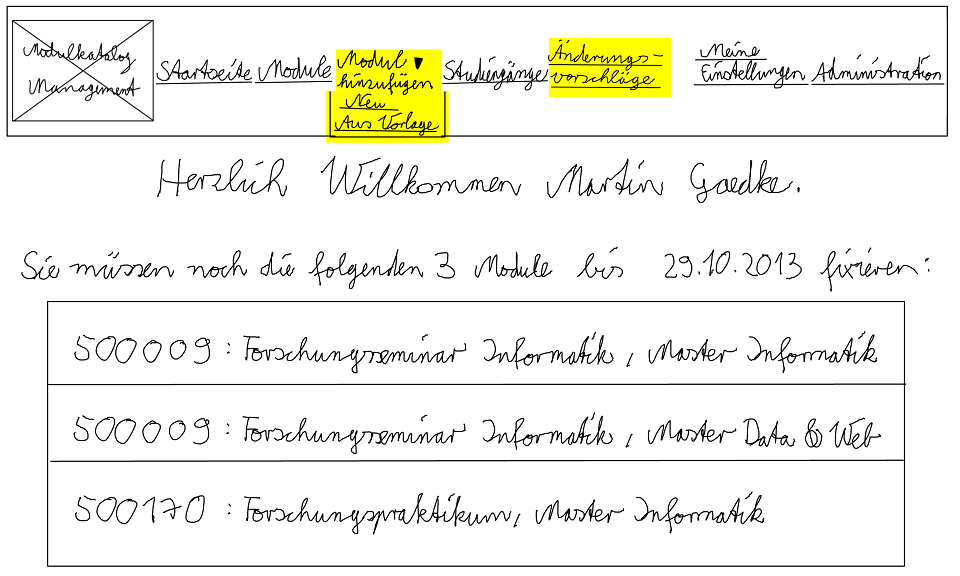 Modulkatalog
Management
Startseite Module Modul ▼ hinzufügen Studiengänge Änderungs-
vorschläge Meine
Einstellungen Administration
Neu
Aus Vorlage
Herzlich Willkommen Martin Gaedke.
Sie müssen noch die folgenden 3 Module bis 29.10.2013 fixieren:
500009 : Forschungsseminar Informatik, Master Informatik
500009 : Forschungsseminar Informatik, Master Data & Web
500170 : Forschungspraktikum, Master Informatik